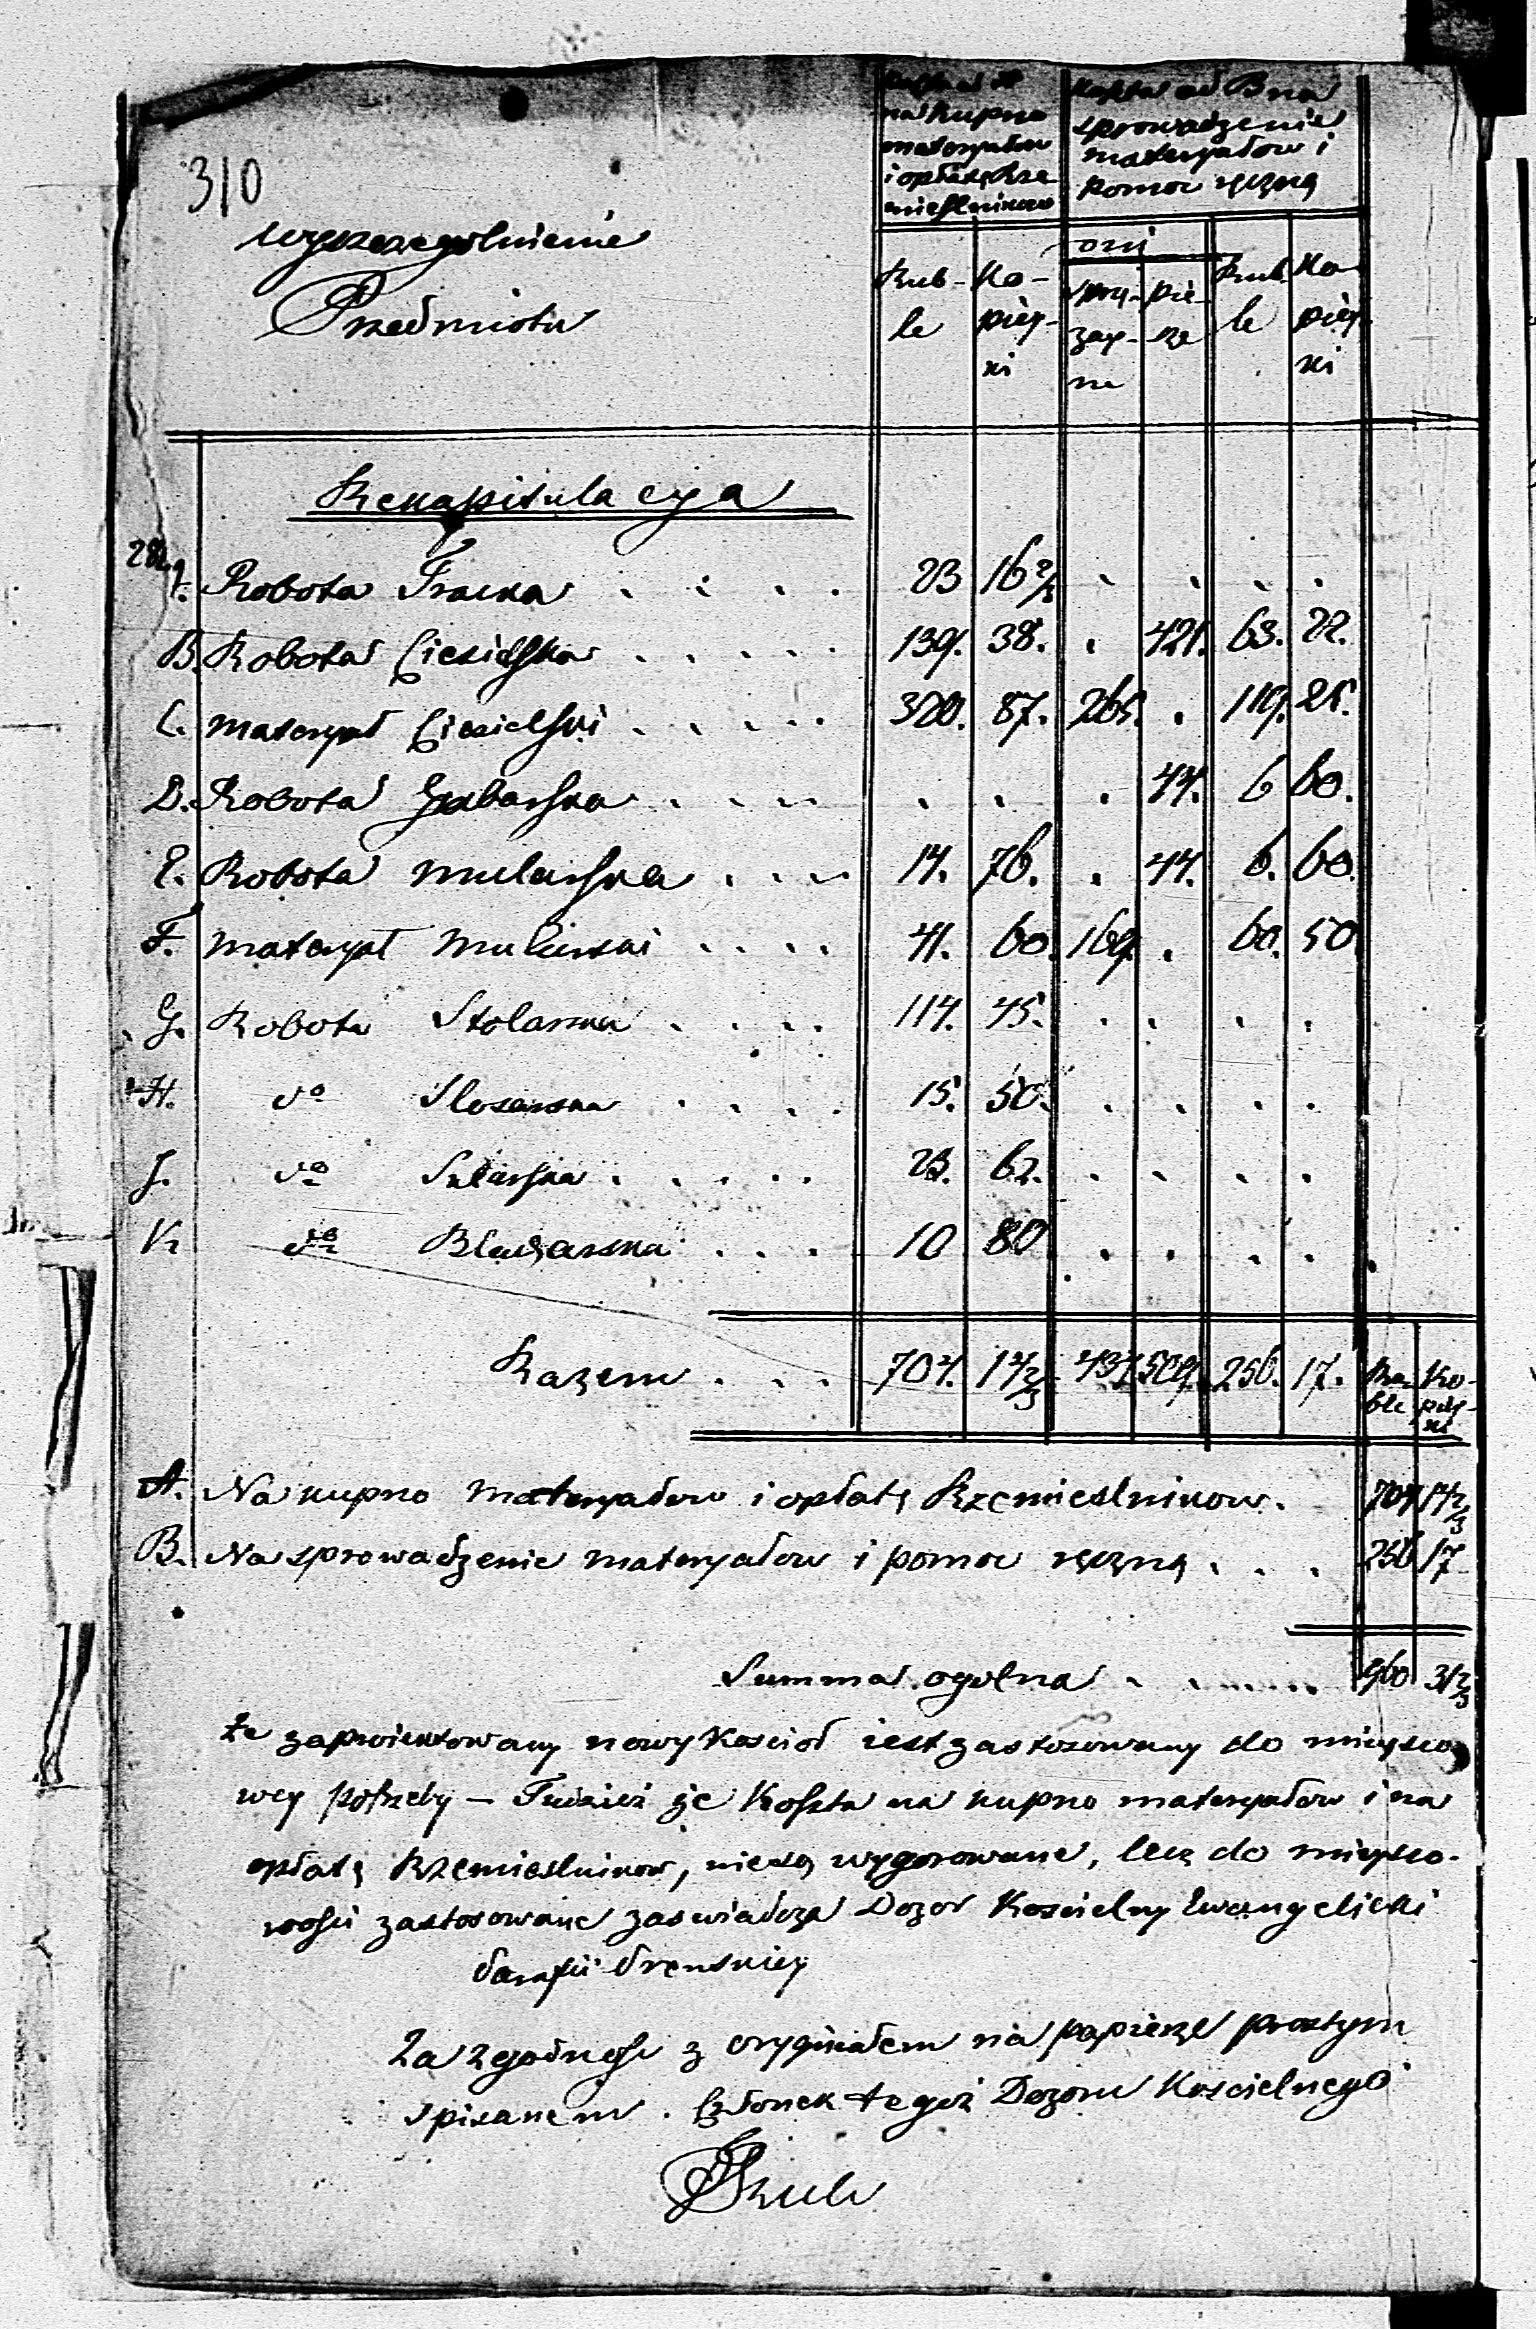 310
Koszta A
na kupno
materyałow
i opłatę Rze-
mieslnikow
Koszta ad B na
sprowadzenie
materyałow i
pomoc ręczną
wyszczegolnienie
Przedmiotu
Rub- Ko- Dni Rub- Ko-
le piey- sprzę- pie- le piey-
ki żay- sze ki
ne
Rekapitulacyja
A. Robota Tracka . . . . 23 16 2/3 . . . .
B. Robota Ciesielska . . . . . 139. 38. . 421. 63. 22.
C. materyał Ciesielski . . . . . 320. 87. 265. . 119. 25.
D. Robota Grabarska . . . . . . . 44. 6 60.
E. Robota mularska . . . . 14. 76. . 44. 6. 60.
F. materyał Mularski . . . . 41. 60. 169. . 60. 50
G. Robota Stolarska . . . . 114. 45. . . . .
H. do Slosarska . . . . 15. 50. . . . .
J. do Szklarska . . . . . 23. 62. . . . .
K do Blacharska . . . 10 80 . . . .
Razem . . . 704. 14 2/3 434 509. 256. 17. Ru- Ko-
ble piey-
ki
A. Na kupno materyałow i opłatę Rzemieslnikow. 704 14 2/3
B. Na sprowadzenie materyałow i pomoc ręczną . . . 256 17
Summa ogolna . . . . . . . 960 31 2/3
że zaproiektowany nowy Kościoł iest zastosowany do mieysco
wey potrzeby – Tudzież że Koszta na kupno materyałow i na
opłatę Rzemieslnikow, niesą wygorowane, lecz do mieysco-
wości zastosowane zaswiadcza Dozor Koscielny Ewangelicki
Parafii
Za zgodność z oryginałem na papierze prostym
spisanem. Członek tegoż Dozoru Koscielnego